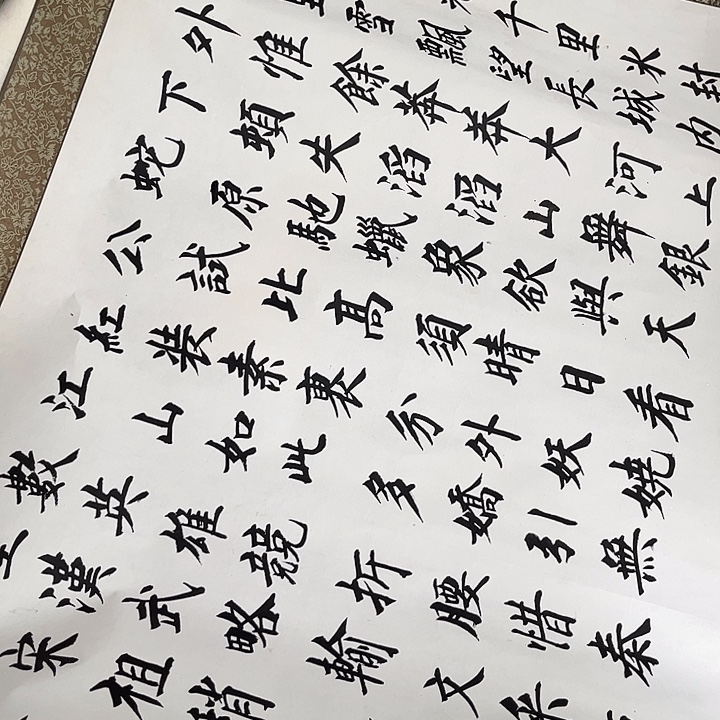 千里冰封
雪飄望長城內
外惟餘莽莽大河上
下頓失滔滔山舞銀
蛇原馳蠟象欲與天
公試比高須晴日看
紅裝素裹分外妖嬈
江山如此多嬌引無
數英雄競折腰惜秦
漢武略輸文采
宋祖稍